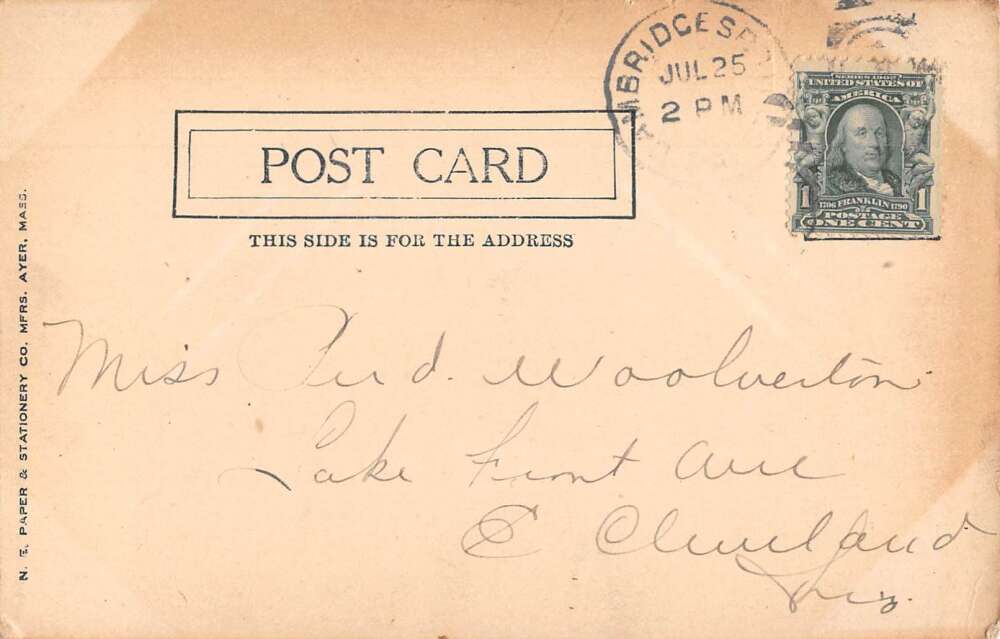 MBRIDGES
JUL 25
2 PM
SERIES 1902
UNITED STATES OF
AMERICA
1 1706 FRANKLIN 1790 1
POSTAGE
ONE CENT
POST CARD
THIS SIDE IS FOR THE ADDRESS
N. E. PAPER & STATIONERY CO. MFRS. AYER, MASS.
Miss Woolverton
Lake Front Ave
E Cleveland